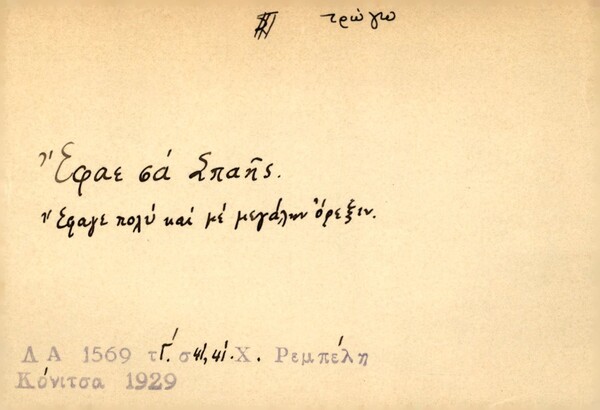 τρώγω
Ἔφαε σά Σπαῆς.
Ἔφαγε πολύ καί μέ μεγάλην ὄρεξιν.
Λ Α 1569 τ Γ΄. σ 41, 41. Χ. Ρεμπέλη
Κόνιτσα 1929